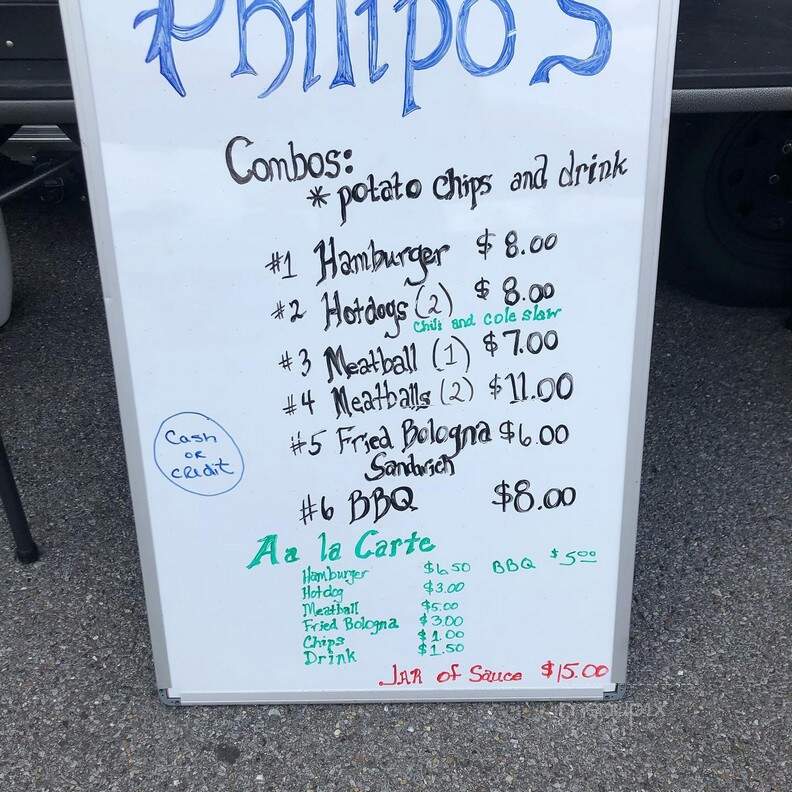 Philipo's
Combos:
* potato chips and drink
#1 Hamburger $8.00
#2 Hotdogs (2) $8.00
Chili and cole slaw
#3 Meatball (1) $7.00
#4 Meatballs (2) $11.00
#5 Fried Bologna $6.00
Sandwich
#6 BBQ $8.00
Cash
OR
credit
Aa la Carte
Hamburger $6.50 BBQ $5.00
Hotdog $3.00
Meatball $5.00
Fried Bologna $3.00
Chips $1.00
Drink $1.50
JAR of Sauce $15.00